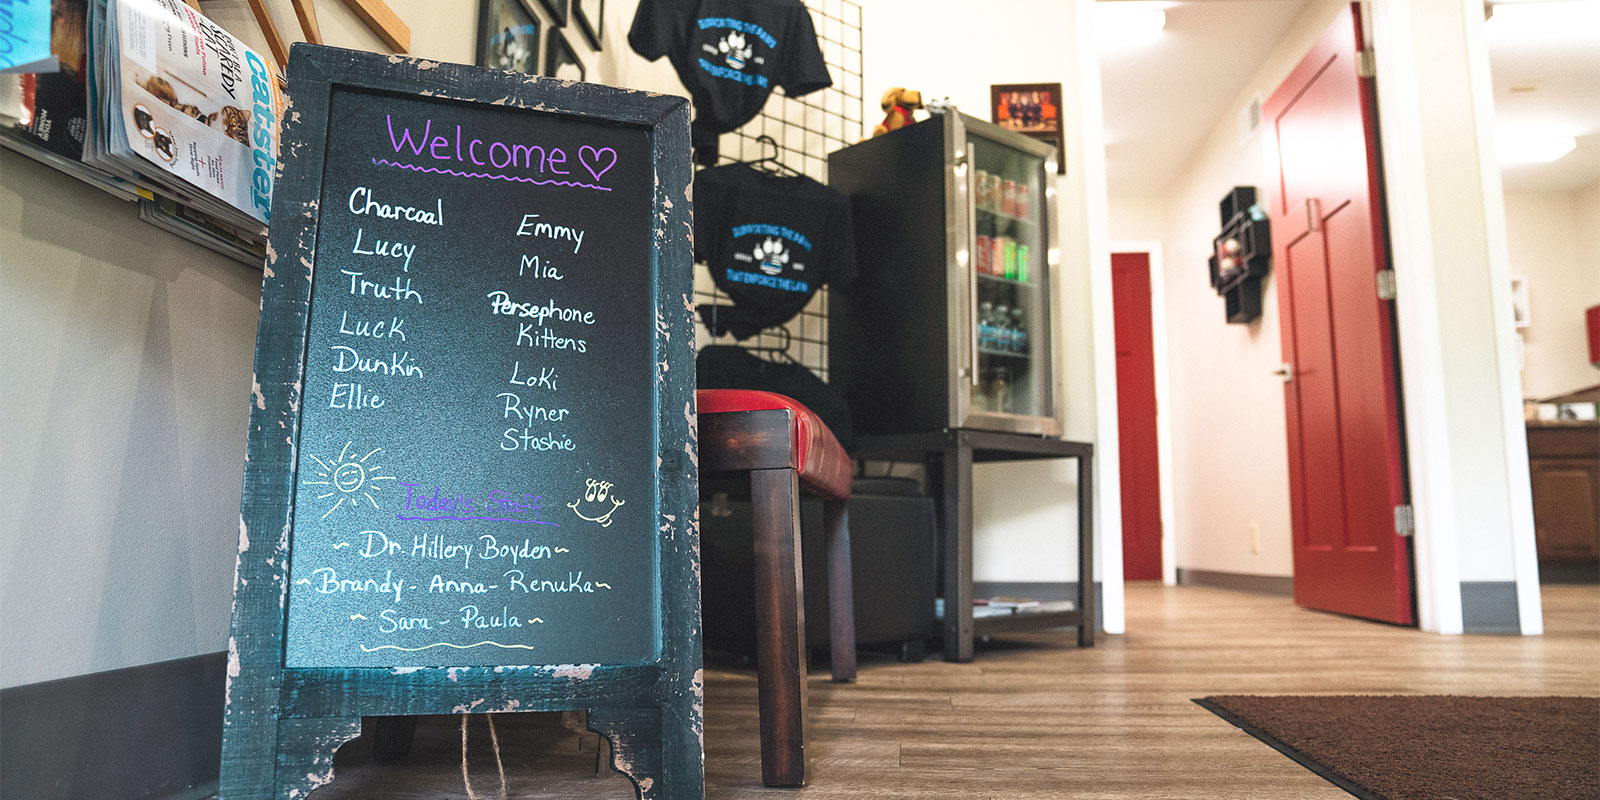 Welcome ♡
Charcoal
Lucy
Truth
Luck
Dunkin
Ellie
Emmy
Mia
Persephone
Kittens
Loki
Ryner
Stashie
Today's Staff
~ Dr. Hillery Boyden ~
~ Brandy - Anna - Renuka ~
~ Sara - Paula ~
catster
SUPPORTING THE PAWS
THAT ENFORCE THE LAW
SUPPORTING THE PAWS
THAT ENFORCE THE LAW